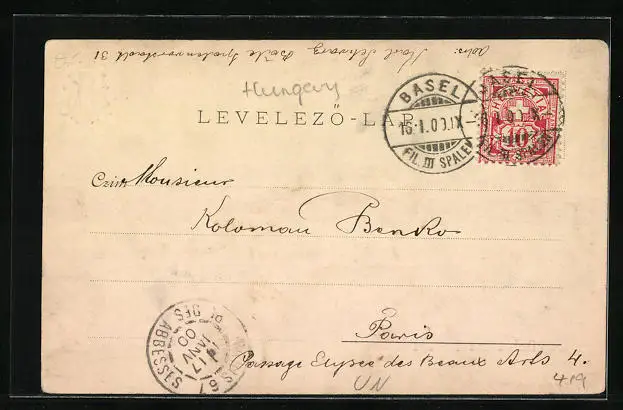 Abs: Karl Schwarz Basle Spalenvorstadt 31
Hungary
LEVELEZŐ-LAP
BASEL
15.I.00.IX
FIL. III SPALEN
HELVETIA
10
Czim Monsieur
Koloman Benko
Paris
Passage Elysée des Beaux Arts 4.
PL. DES ABBESSES
17
JANV
00
67
UN
419